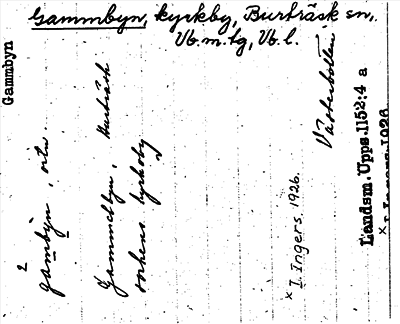 Gammbyn, kyrkby, Burträsk sn,
Vb.m.tg, Vb.l.
Gammbyn
gambyn, ortn.
Gammelbyn, Burträsk
sockens kyrkoby
x I. Ingers, 1926.
Västerbotten
Landsm. Upps. 1152:4 a
x I. Ingers 1926